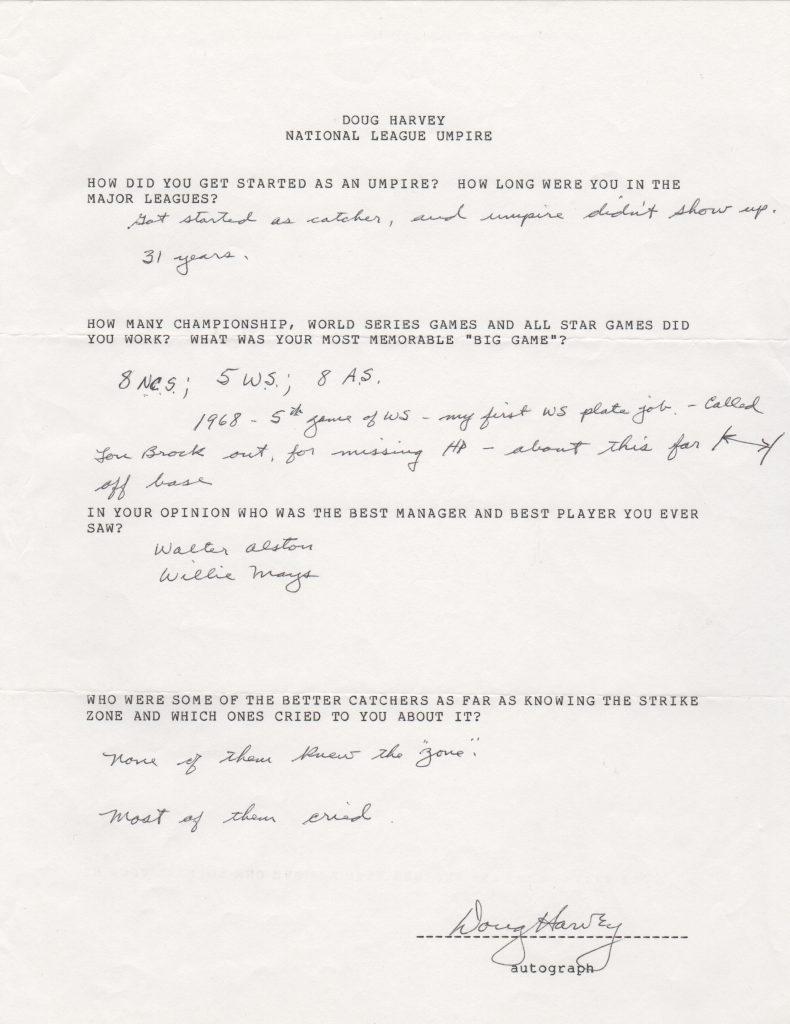 DOUG HARVEY
NATIONAL LEAGUE UMPIRE
HOW DID YOU GET STARTED AS AN UMPIRE? HOW LONG WERE YOU IN THE
MAJOR LEAGUES?
Got started as catcher, and umpire didn't show up.
31 years.
HOW MANY CHAMPIONSHIP, WORLD SERIES GAMES AND ALL STAR GAMES DID
YOU WORK? WHAT WAS YOUR MOST MEMORABLE "BIG GAME"?
8 N.C.S.; 5 W.S.; 8 A.S.
1968 - 5th game of WS - my first WS plate job. - Called
Lou Brock out, for missing HP - about this far
off base
IN YOUR OPINION WHO WAS THE BEST MANAGER AND BEST PLAYER YOU EVER
SAW?
Walter Alston
Willie Mays
WHO WERE SOME OF THE BETTER CATCHERS AS FAR AS KNOWING THE STRIKE
ZONE AND WHICH ONES CRIED TO YOU ABOUT IT?
None of them knew the "zone".
Most of them cried.
Doug Harvey
autograph